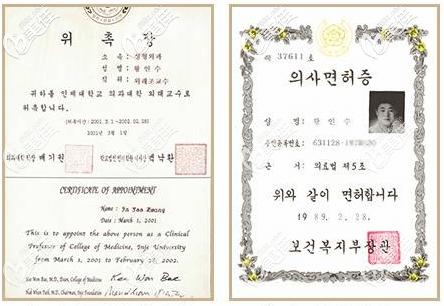 위 촉 장
소 속 : 성형외과
성 명 : 황 인 수
직 위 : 외래조교수
귀하를 인제대학교 의과대학 외래교수로
위촉합니다.
(위촉기간 : 2001. 3. 1 ~ 2002. 02. 28)
2001년 3월 1일
의과대학장 배 기 원
백 낙 환
CERTIFICATE OF APPOINTMENT
Name : In Soo Hwang
Date : March 1, 2001
This is to appoint the above person as a Clinical
Professor of College of Medicine, Inje University
from March 1, 2001 to February 28, 2002.
Kee Won Bae, M.D., Dean, College of Medicine
Nak Whan Paik, M.D., Chairman, Inje Foundation
제 37611 호
의사면허증
성 명 : 황 인 수
주민등록번호 : 631128-
근 거 : 의료법 제5조
위와 같이 면허합니다
1989. 2. 28.
보건복지부장관